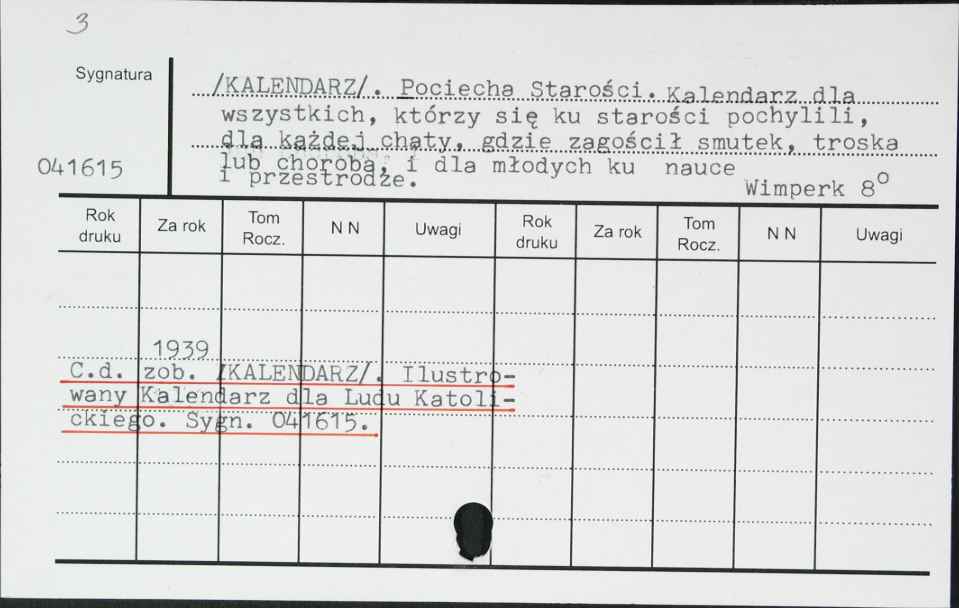 3
Sygnatura
/KALENDARZ/. Pociecha Starości. Kalendarz dla
wszystkich, którzy się ku starości pochylili,
dla każdej chaty, gdzie zagościł smutek, troska
lub choroba, i dla młodych ku nauce
i przestrodze.
Wimperk 8°
041615
Rok druku Za rok Tom Rocz. N N Uwagi Rok druku Za rok Tom Rocz. N N Uwagi
1939
C.d. zob. /KALENDARZ/. Ilustro-
wany Kalendarz dla Ludu Katoli-
ckiego. Sygn. 041615.